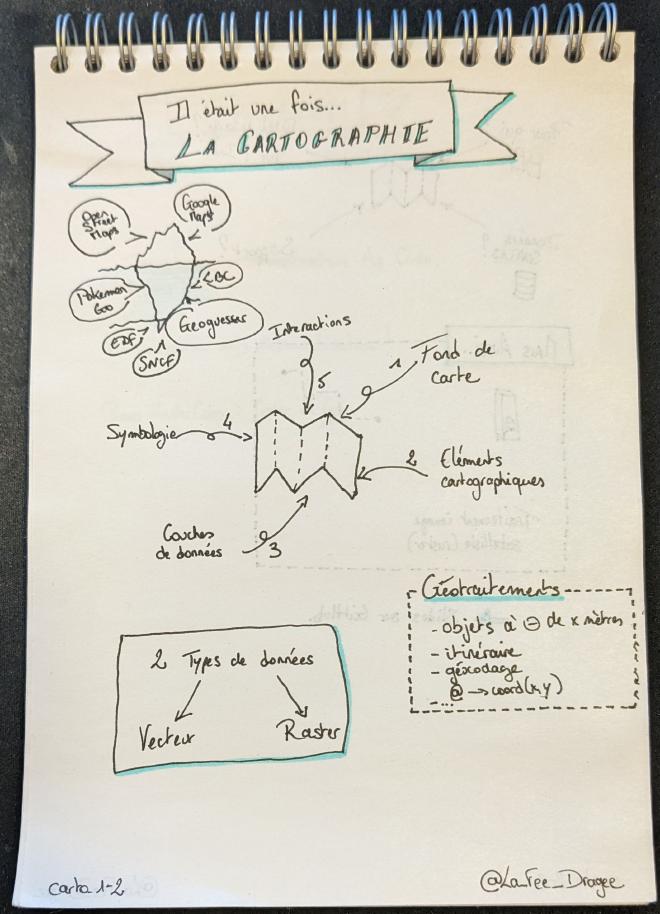 Il était une fois...
LA CARTOGRAPHIE
Open
Street
Maps
Google
Maps
Pokemon
Goo
LBC
Geoguesser
EDF
SNCF
Interactions
5
1
Fond de
carte
Symbologie
4
2
Eléments
cartographiques
Couches
de données
3
Géotraitements
- objets à ⊖ de x mètres
- itinéraire
- géocodage
@ → coord(x,y)
- ...
2 Types de données
Vecteur
Raster
carto 1-2
@La_Fee_Dragee